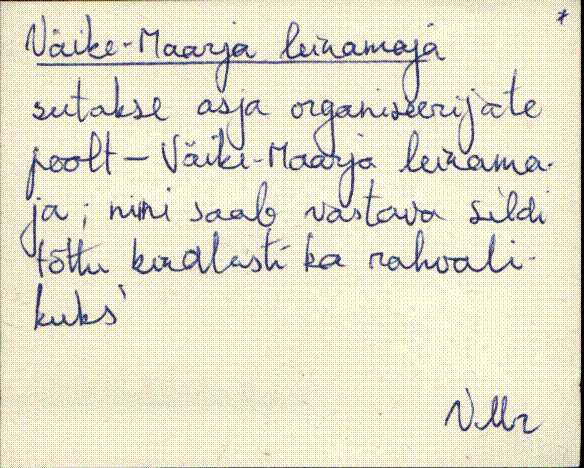 *
Väike-Maarja leinamaja
seetakse asja organiseerijate
poolt – Väike-Maarja leinama-
ja; nimi saab vastava sildi
tõttu kindlasti ka rahvali-
kuks
VMr